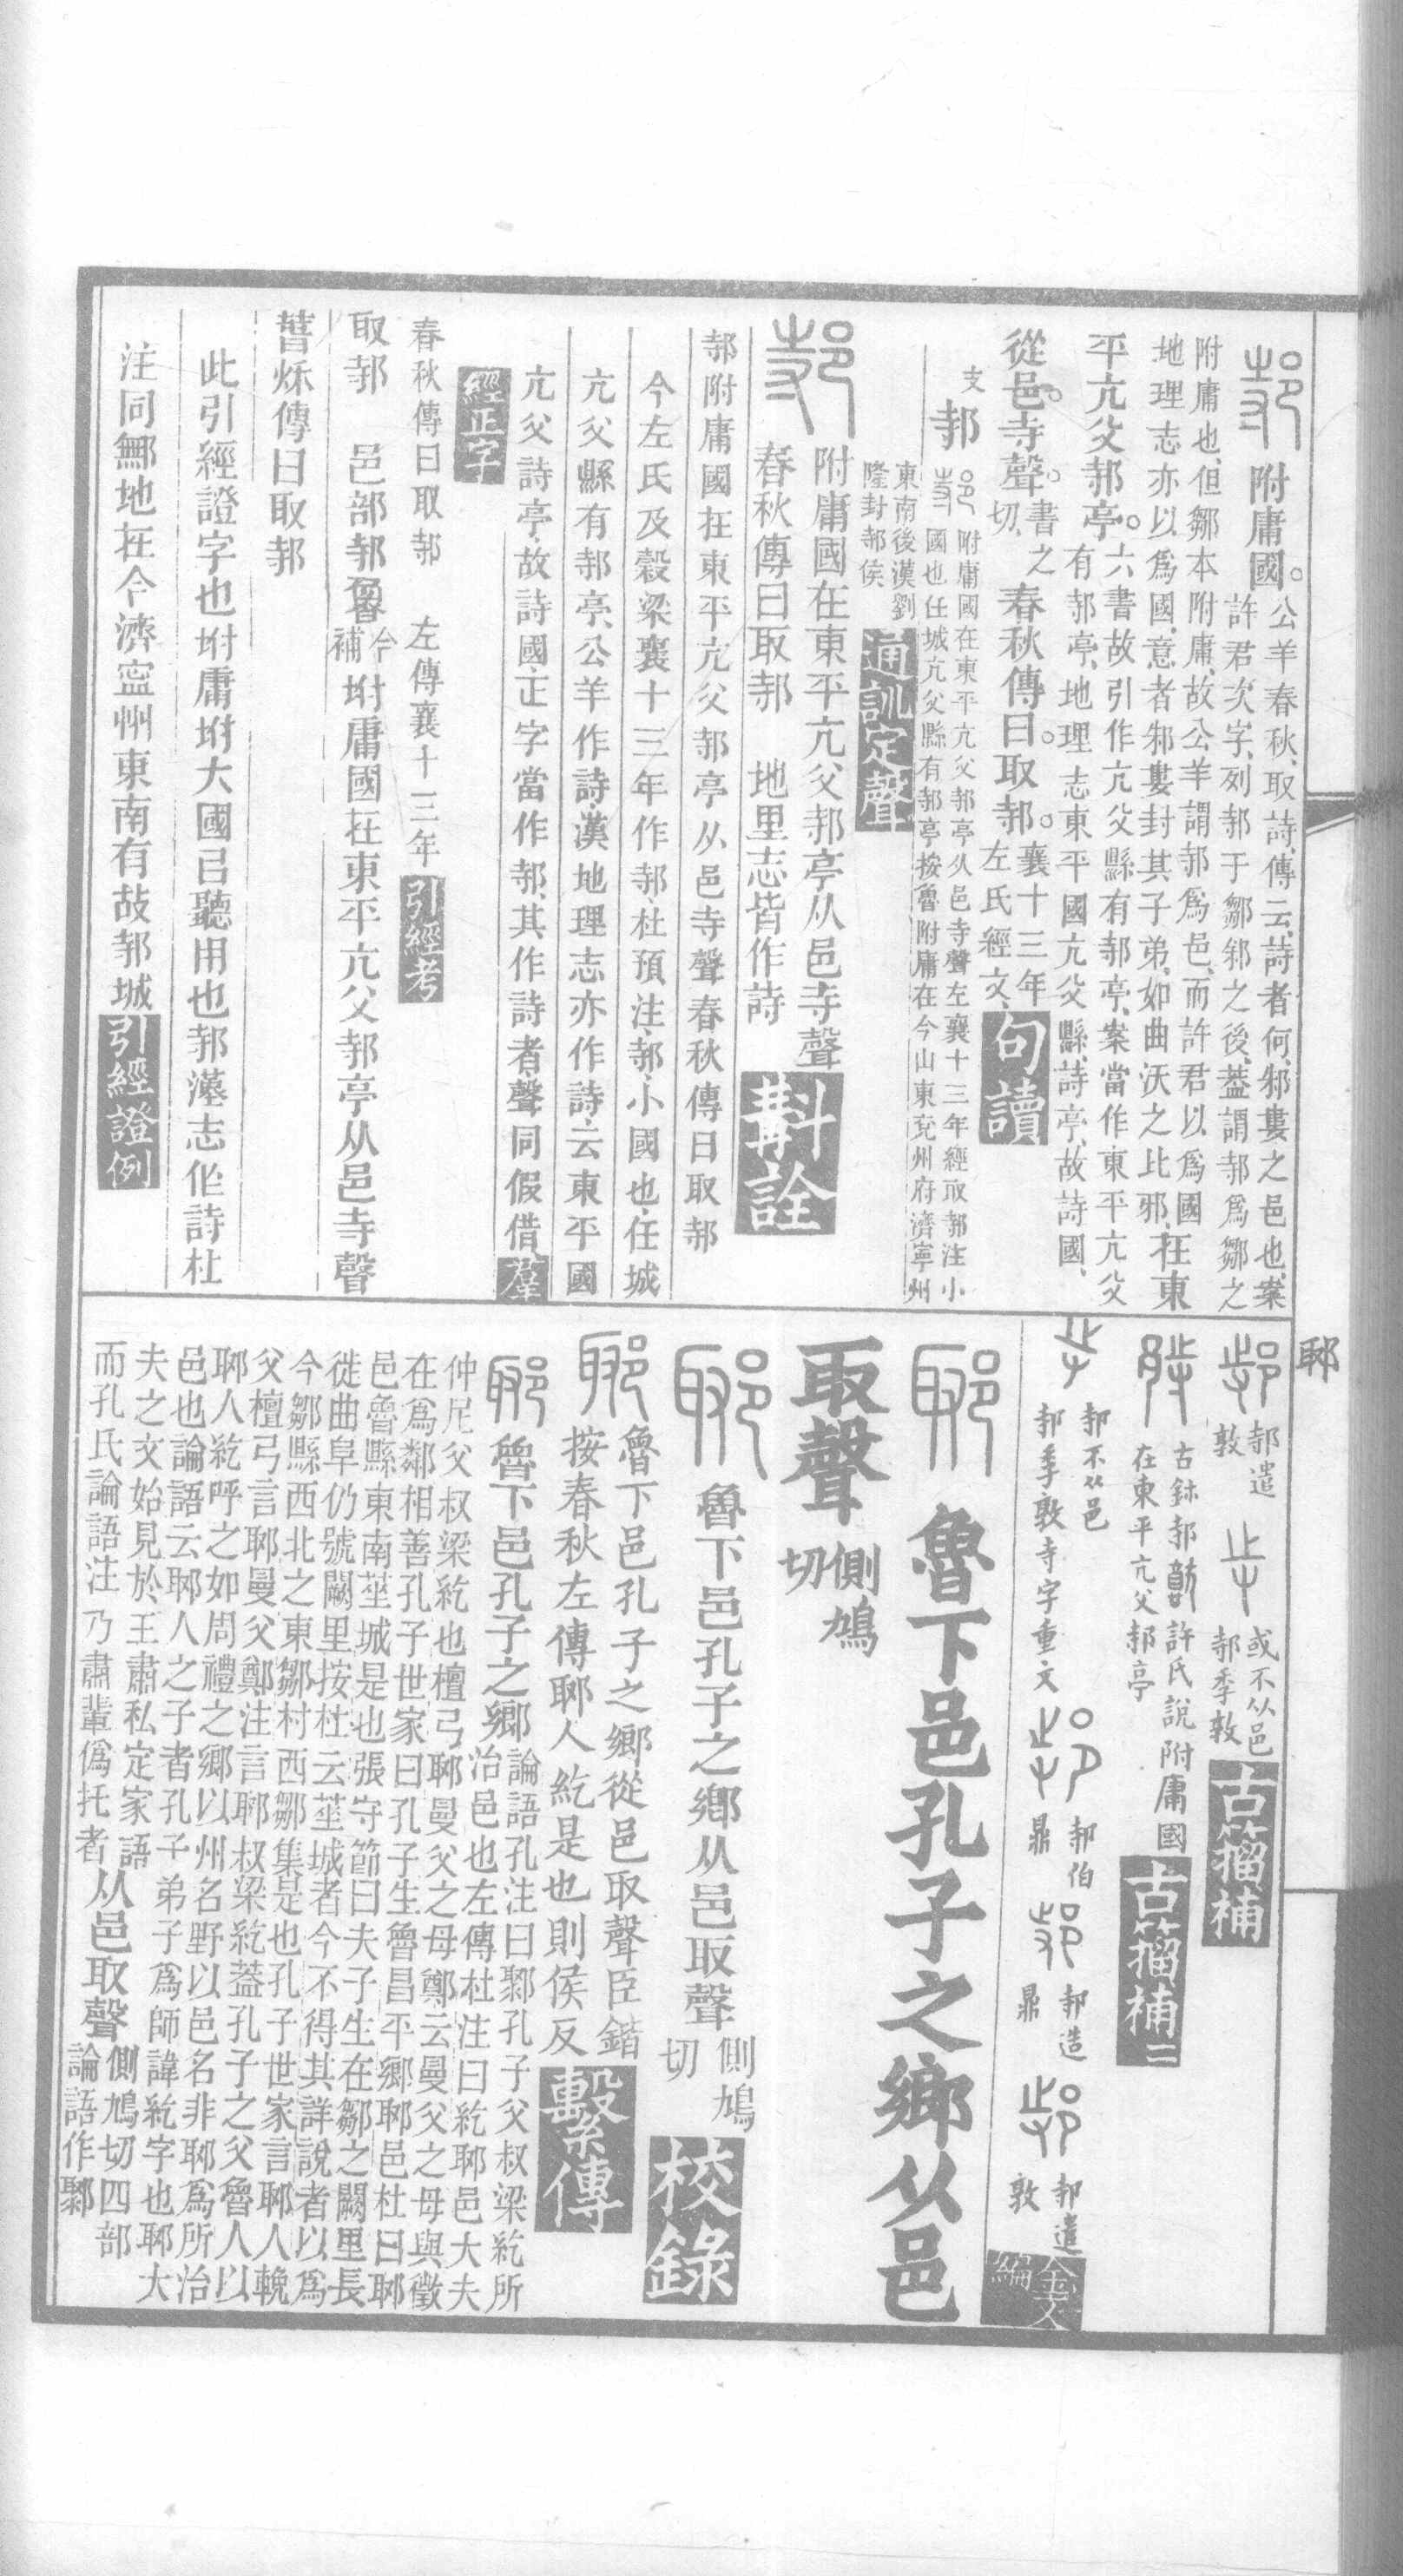 附庸國。公羊春秋、取詩、傳云、詩者何、邾婁之邑也、案
許君次字、列邿于鄒邾之後、葢謂邿爲鄒之
附庸也、但鄒本附庸、故公羊謂邿爲邑、而許君以爲國
地理志亦以爲國、意者邾婁封其子弟、如曲沃之比邪、在東
平亢父邿亭。六書故引作亢父縣有邿亭、案當作東平亢父
有邿亭、地理志東平國亢父縣、詩亭、故詩國、
從邑。寺聲。書之切、春秋傳曰。取邿。襄十三年左氏經文、句讀
支
邿
附庸國在東平亢父邿亭从邑寺聲左襄十三年經取邿注小
國也任城亢父縣有邿亭按魯附庸在今山東兗州府濟寧州
東南後漢劉
隆封邿侯
通訓定聲
附庸國在東平亢父邿亭从邑寺聲
春秋傳曰取邿　地里志皆作詩
斠詮
邿附庸國在東平亢父邿亭从邑寺聲春秋傳曰取邿
今左氏及穀梁襄十三年作邿、杜預注、邿、小國也、任城
亢父縣有邿亭、公羊作詩、漢地理志亦作詩、云東平國
亢父詩亭、故詩國、正字當作邿、其作詩者、聲同假借、羣
經正字
春秋傳曰取邿　左傳襄十三年　引經考
取邿　邑部邿
今補
坿庸國在東平亢父邿亭从邑寺聲
春秌傳曰取邿
此引經證字也坿庸坿大國㠯聽用也邿漢志作詩杜
注同鄦地在今濟寍州東南有故邿城　引經證例
邿遣
敦
或不从邑
邿季敦
古籀補
古鉨邿
許氏說附庸國
在東平亢父邿亭
古籀補二
邿不从邑
邿季敦寺字重文
邿伯
鼎
邿造
鼎
邿遣
敦
金文
編
魯下邑孔子之鄉从邑
取聲
側鳩
切
魯下邑孔子之鄉从邑取聲
側鳩
切
校錄
魯下邑孔子之鄉從邑取聲臣鍇
按春秋左傳郰人紇是也則侯反
繫傳
魯下邑孔子之鄉
論語孔注曰鄹孔子父叔梁紇所
治邑也左傳杜注曰紇郰邑大夫
仲尼父叔梁紇也檀弓郰曼父之母鄭云曼父之母與徵
在爲鄰相善孔子世家曰孔子生魯昌平鄉郰邑杜曰郰
邑魯縣東南莝城是也張守節曰夫子生在鄒之闕里長
徙曲阜仍號闕里按杜云莝城者今不得其詳說者以爲
今鄒縣西北之東鄒村西鄒集是也孔子世家言郰人輓
父檀弓言郰曼父鄭注言郰叔梁紇葢孔子之父魯人以
郰人紇呼之如周禮之鄉以州名野以邑名非郰爲所治
邑也論語云郰人之子者孔子弟子爲師諱紇字也郰大
夫之文始見於王肅私定家語
而孔氏論語注乃肅輩僞托者
从邑取聲
側鳩切四部
論語作鄹
郰